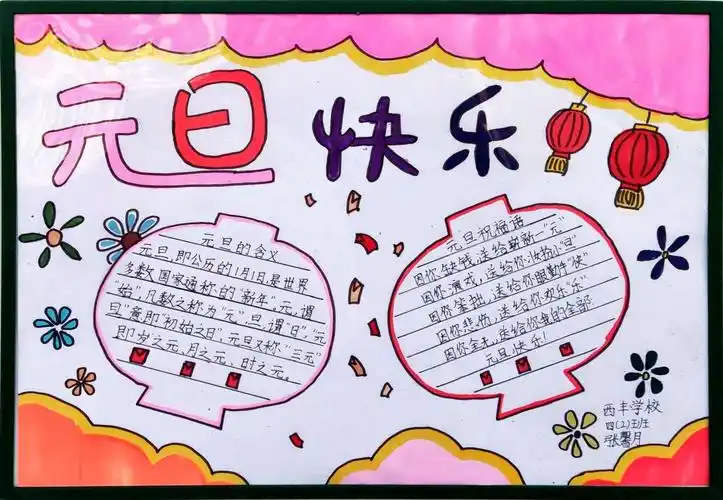 元旦快乐
元旦的含义
元旦,即公历的1月1日是世界
多数国家通称的"新年"。元,谓
"始",凡数之称为"元";旦,谓"日";"元
旦"意即"初始之日"。元旦又称"三元"
即岁之元、月之元、时之元。
元旦祝福语
因你缺钱,送给崭新一"元"
因你演戏,送给你妆扮小"旦"
因你笨拙,送给你眼勤手"快"
因你悲伤,送给你欢乐"乐"
因你全无,送给你我的全部
元旦快乐!
西丰学校
四(2)班
张馨月